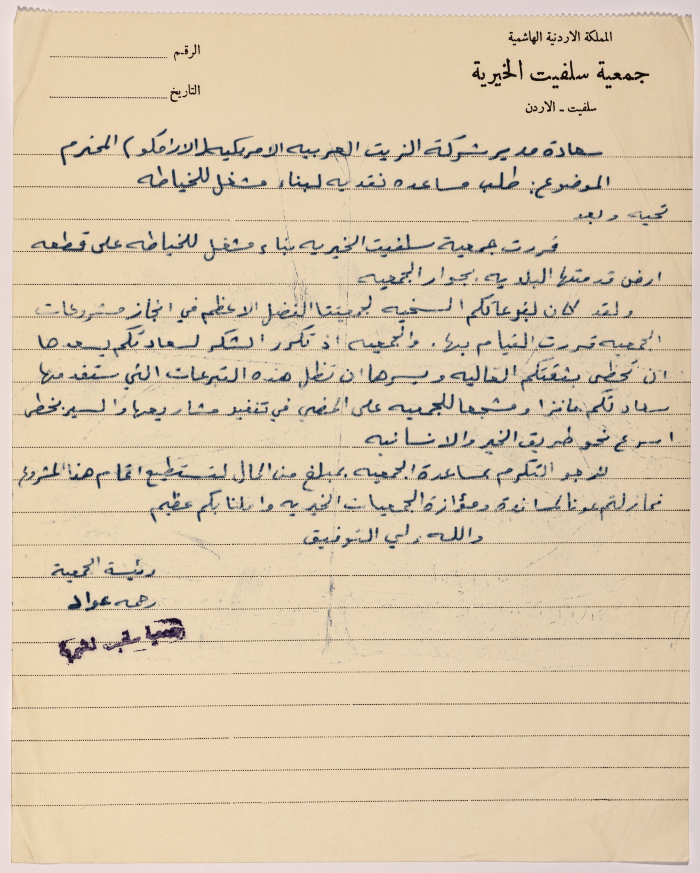 المملكة الاردنية الهاشمية
جمعية سلفيت الخيرية
سلفيت - الاردن
الرقم
التاريخ
سعادة مدير شركة الزيت العربيه الامريكيه (الارامكو) المحترم
الموضوع: طلب مساعده نقديه لبناء مشغل للخياطه
تحيه وبعد
قررت جمعية سلفيت الخيريه بناء مشغل للخياطه على قطعه
ارض قدمتها البلديه بجوار الجمعيه
ولقد كان لتبرعاتكم السخيه لجمعيتنا الفضل الاعظم في انجاز مشروعات
الجمعيه قررت القيام بها. والجمعيه اذ تكرر الشكر لسعادتكم يسعدها
ان تحظى بثقتكم الغاليه ويسرها ان تظل هذه التبرعات التي ستقدمها
سعادتكم حافزا ومشجعا للجمعيه على المضي في تنفيذ مشاريعها والسير بخطى
اسرع نحو طريق الخير والانسانيه
نرجو التكرم بمساعدة الجمعيه بمبلغ من المال لنستطيع اتمام هذا المشروع
فما زلتم عونا لمساندة ومؤازرة الجمعيات الخيريه واملنا بكم عظيم
والله ولي التوفيق
رئيسة الجمعية
رحمه عواد